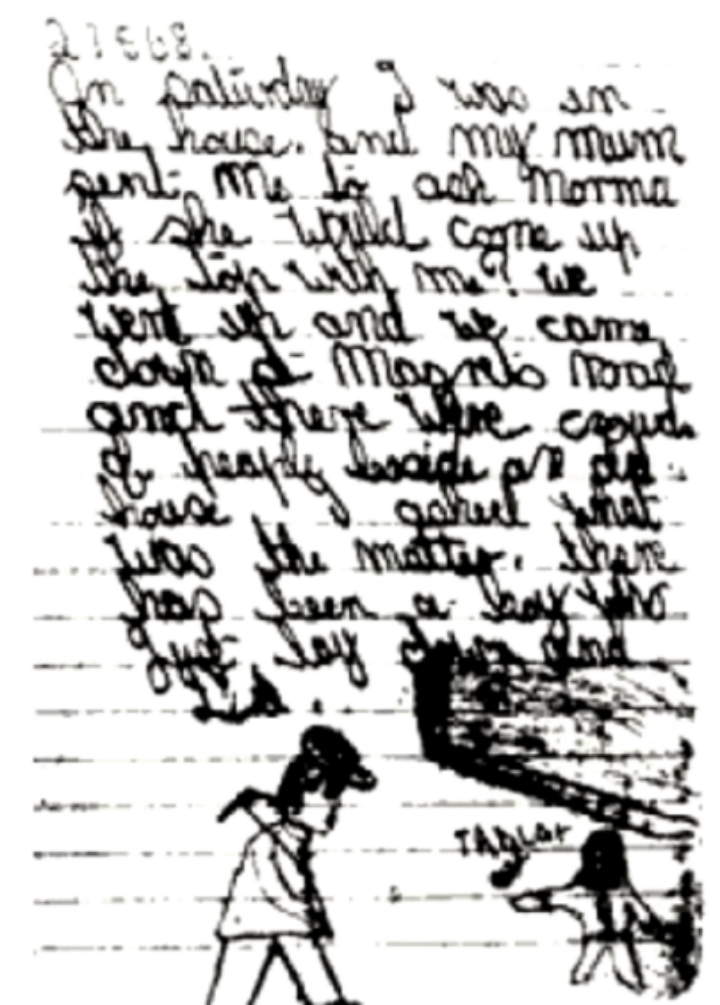 27568.
On saturday I was in
the house. and my mum
sent Me to ask Norma
if she would come up
the top with me? we
went up and we came
down at Magrets road
and there were crowds
of people beside an old
house I asked what
was the matter. there
has been a boy who
Just lay down and
Died.
TABLet